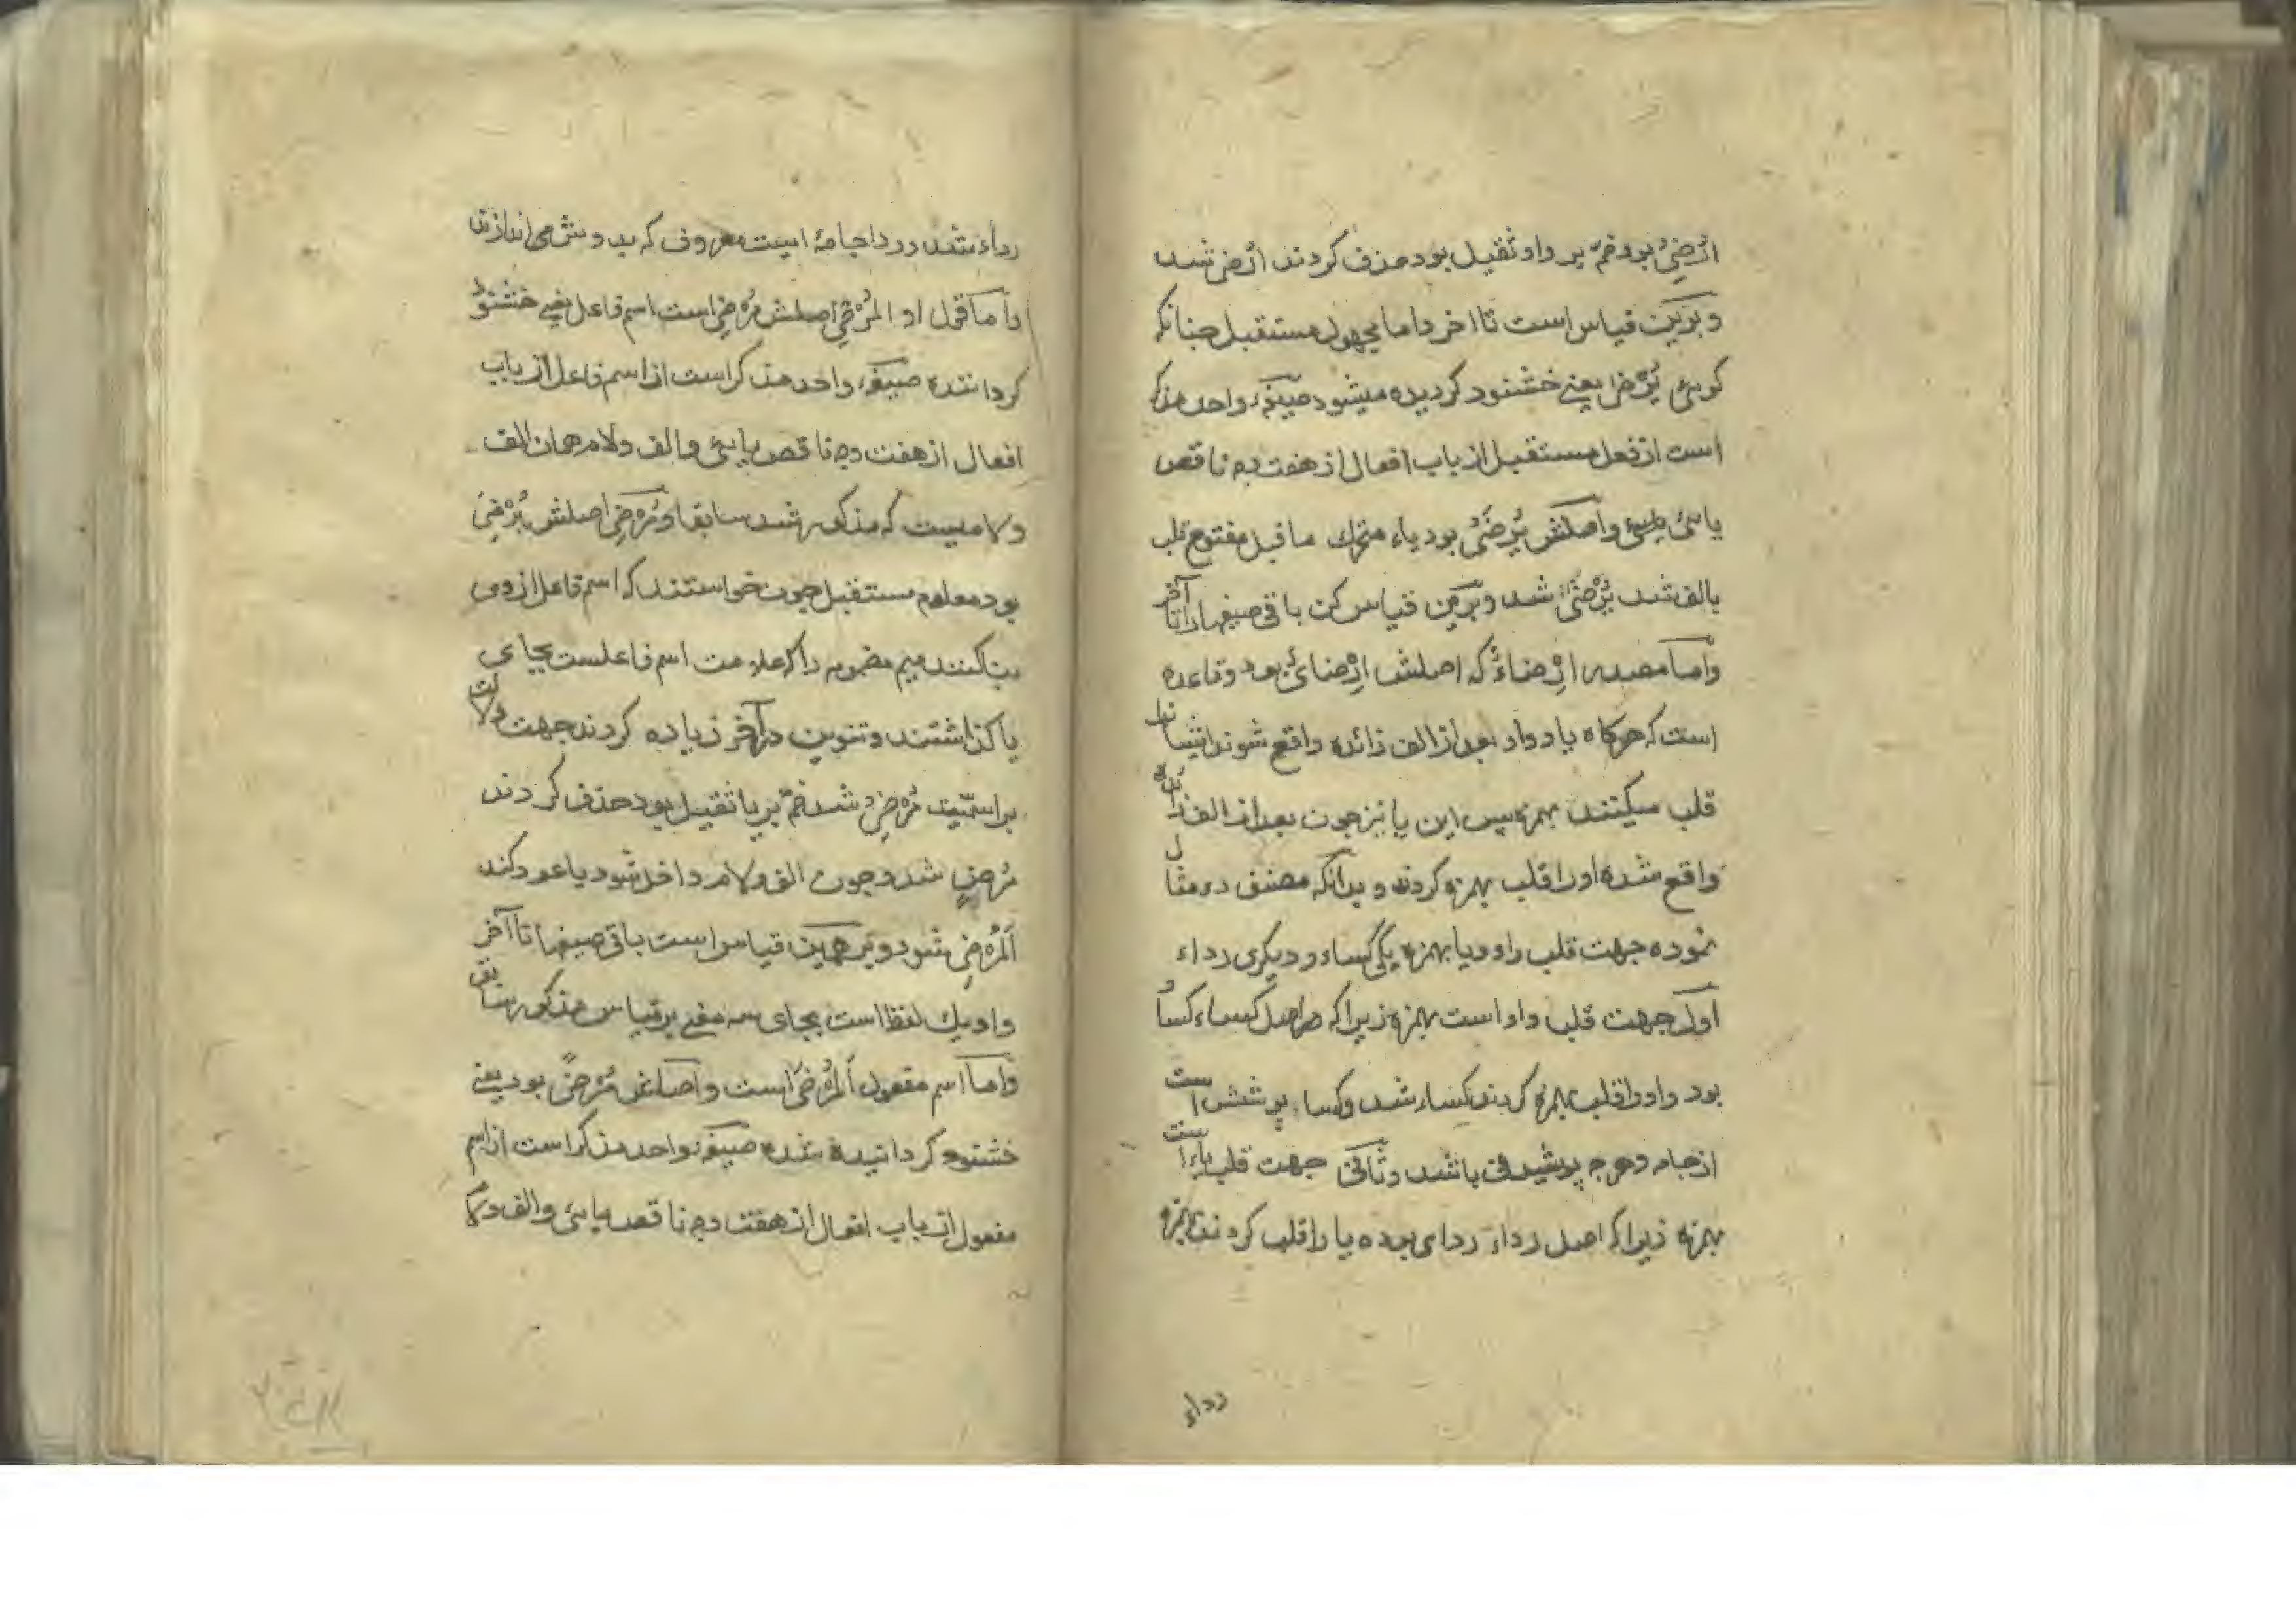 ارضی بود ضمه بر واو ثقیل بود حذف کردند ارضی شد
و برین قیاس است تا اخر و اما مجهول مستقبل چنانکه
کوئی یُرْضٰی یعنے خشنود کردیده میشود صیغهٔ واحد مذکر
است از فعل مستقبل از باب افعال از هفت وجه ناقص
یائی و اصلش یُرْضَیُ بود یاء متحرک ماقبل مفتوح قلب
بالف شد یُرْضٰی شد و برین قیاس کن باقی صیغها را تا آخر
و اما مصدر اِرْضَاءٌ که اصلش اِرْضَایٌ بود و قاعده
است که هرکاه یا و واو بعد از الف زائده واقع شوند ایشانرا
قلب میکنند بهمزه پس این یا نیز چون بعد از الف زائده
واقع شده او را قلب بهمزه کردند و بدانکه مصنف دو مثال
نموده جهت قلب واو و یا بهمزه یکی کساء و دیکری رداء
اول جهت قلب واو است بهمزه زیرا که در اصل کساء کساو
بود واو را قلب بهمزه کردند کساء شد و کساء پوشش است
از جامه و هرچه پوشیدنی باشد و ثانی جهت قلب یاء است
بهمزه زیرا که اصل رداء ردای بوده یا را قلب کردند بهمزه
رداء
رداء شد و رداء جامهٔ است معروف که بدوش می اندازند
و اما قول او المُرْضِی اصلش مُرْضِی است اسم فاعل یعنے خشنود
کرداننده صیغهٔ واحد مذکر است از اسم فاعل از باب
افعال از هفت وجه ناقص یائی و الف و لام همان الف
و لامیست که مذکور شد سابقا و مُرْضِی اصلش یُرْضِیُ
بود معلوم مستقبل چون خواستند که اسم فاعل از وی
بنا کنند میم مضمومه را که علامت اسم فاعلست بجای
یا کذاشتند و تنوین در آخر زیاده کردند جهت دلالت
بر اسمیّت مُرْضِیٌ شد ضمّه بر یا ثقیل بود حذف کردند
مُرْضٍ شد و چون الف و لام داخل شود یا عود کند
اَلْمُرْضِی شود و بر همین قیاس است باقی صیغها تا آخر
و او یک لفظ است بجای سه معنے بر قیاس مذکور سابق
و اما اسم مفعول اَلْمُرْضٰی است و اصلش مُرْضًی بود یعنے
خشنود کردانیده شده صیغهٔ واحد مذکر است از اسم
مفعول از باب افعال از هفت وجه ناقص یائی و الف و لام